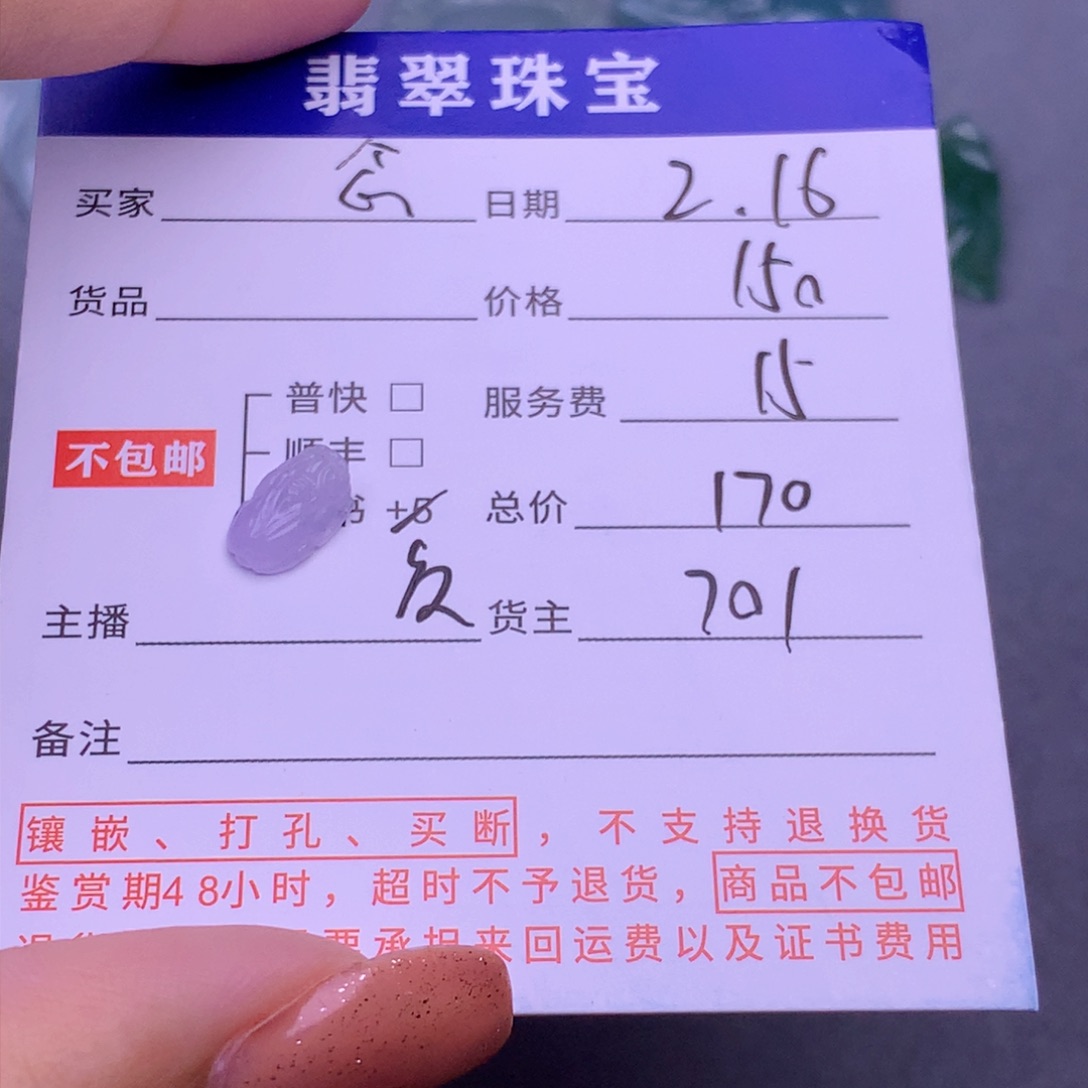 翡翠珠宝
买家 念 日期 2.16
货品 价格 150
普快 □ 服务费 15
不包邮 顺丰 □
书 +5 总价 170
主播 货主 701
备注
镶嵌、打孔、买断，不支持退换货
鉴赏期48小时，超时不予退货，商品不包邮
退货 需要承担来回运费以及证书费用